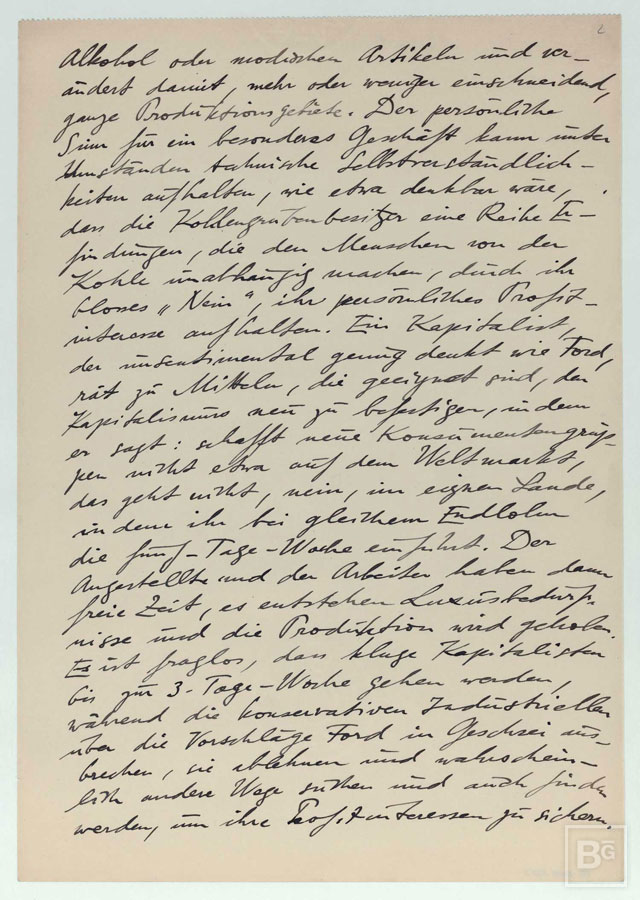 2
Alkohol oder modischen Artikeln und ver-
ändert damit, mehr oder weniger einschneidend,
ganze Produktionsgebiete. Der persönliche
Sinn für ein besonderes Geschäft kann unter
Umständen technische Selbstverständlich-
keiten aufhalten, wie etwa denkbar wäre,
dass die Kohlengrubenbesitzer eine Reihe Er-
findungen, die den Menschen von der
Kohle unabhängig machen, durch ihr
blosses „Nein", ihr persönliches Profit-
interesse aufhalten. Ein Kapitalist,
der unsentimental genug denkt wie Ford,
rät zu Mitteln, die geeignet sind, den
Kapitalismus neu zu befestigen, indem
er sagt: schafft neue Konsumentengrup-
pen nicht etwa auf dem Weltmarkt,
das geht nicht, nein, im eignen Lande,
indem ihr bei gleichem Endlohn
die fünf-Tage-Woche einführt. Der
Angestellte und der Arbeiter haben dann
freie Zeit, es entstehen Luxusbedürf-
nisse und die Produktion wird gehoben.
Es ist fraglos, dass kluge Kapitalisten
bis zur 3-Tage-Woche gehen werden,
während die konservativen Industriellen
über die Vorschläge Ford in Geschrei aus-
brechen, sie ablehnen und wahrschein-
lich andere Wege suchen und auch finden
werden, um ihre Profitinteressen zu sichern.
BG